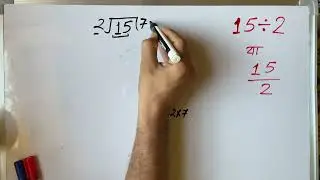 2√15(7
15÷2
या
15
2
2×7